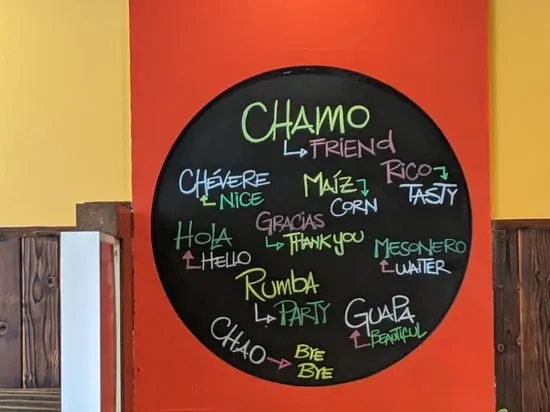 CHAMO
FRIEND
CHÉVERE
NICE
MAÍZ
CORN
RICO
TASTY
HOLA
HELLO
GRACIAS
THANK YOU
MESONERO
WAITER
RUMBA
PARTY
GUAPA
BEAUTIFUL
CHAO
BYE
BYE